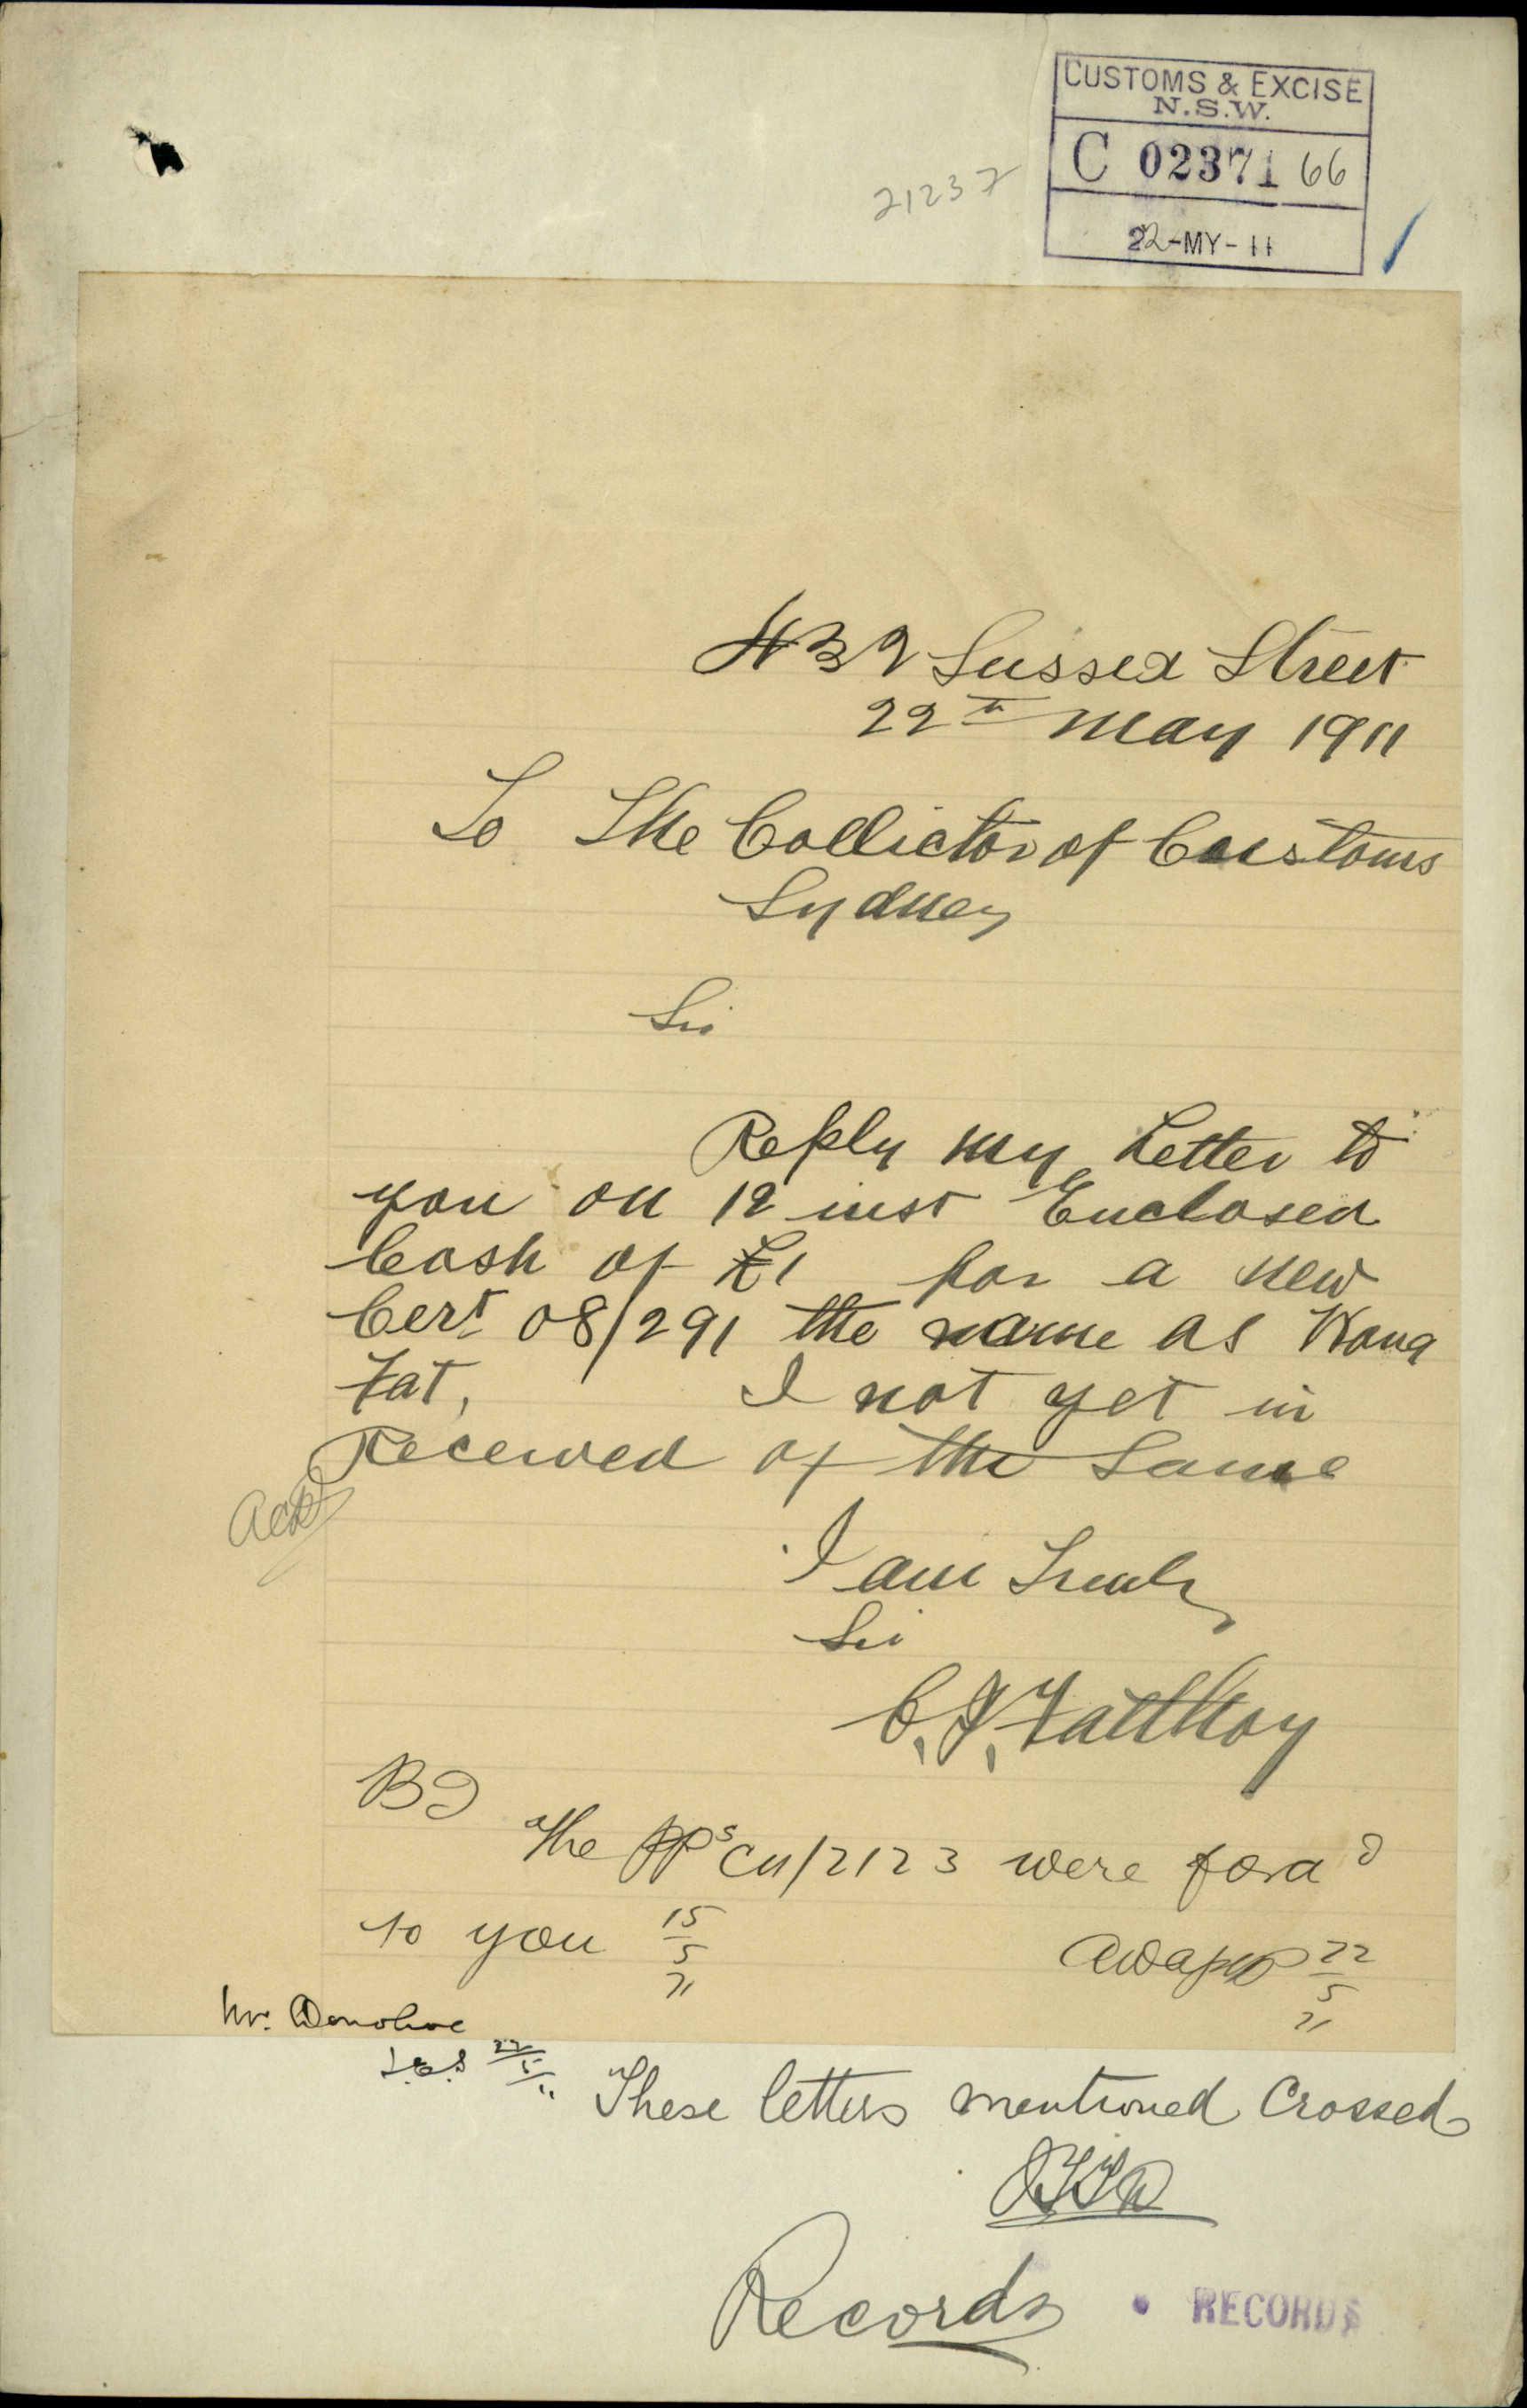 CUSTOMS & EXCISE
N.S.W.
C 02371 66
22-MY-11
21237
432 Sussex Street
22th May 1911
To The Collictor of Coustoms
Sydney
Sir
Reply my Letter to
you on 12 inst Enclosed
Cash of £1 for a new
Cert 08/291 the name as Wong
Fat, I not yet in
Received of the Same
I am Truly
Sir
C. J. Fatt Hoy
The PPs C11/2123 were forwd
to you 15/5/11
22/5/11
Mr. Donohoe
22/5/11
These letters mentioned Crossed
Records
RECORDS